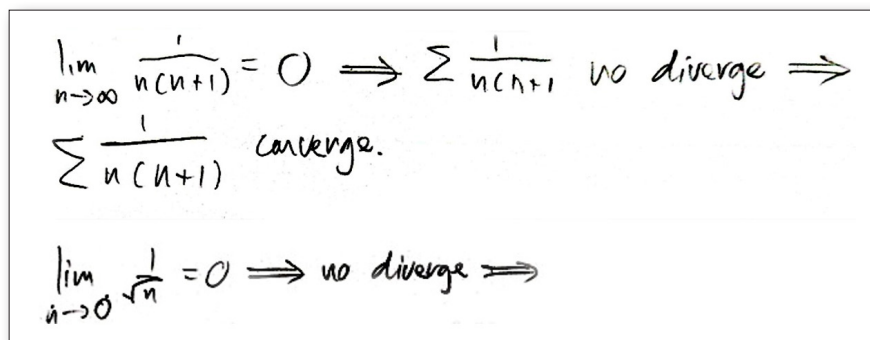 lim n→∞ 1/n(n+1) = 0 ⟹ Σ 1/n(n+1 no diverge ⟹
Σ 1/n(n+1) converge.
lim n→0 1/√n = 0 ⟹ no diverge ⟹